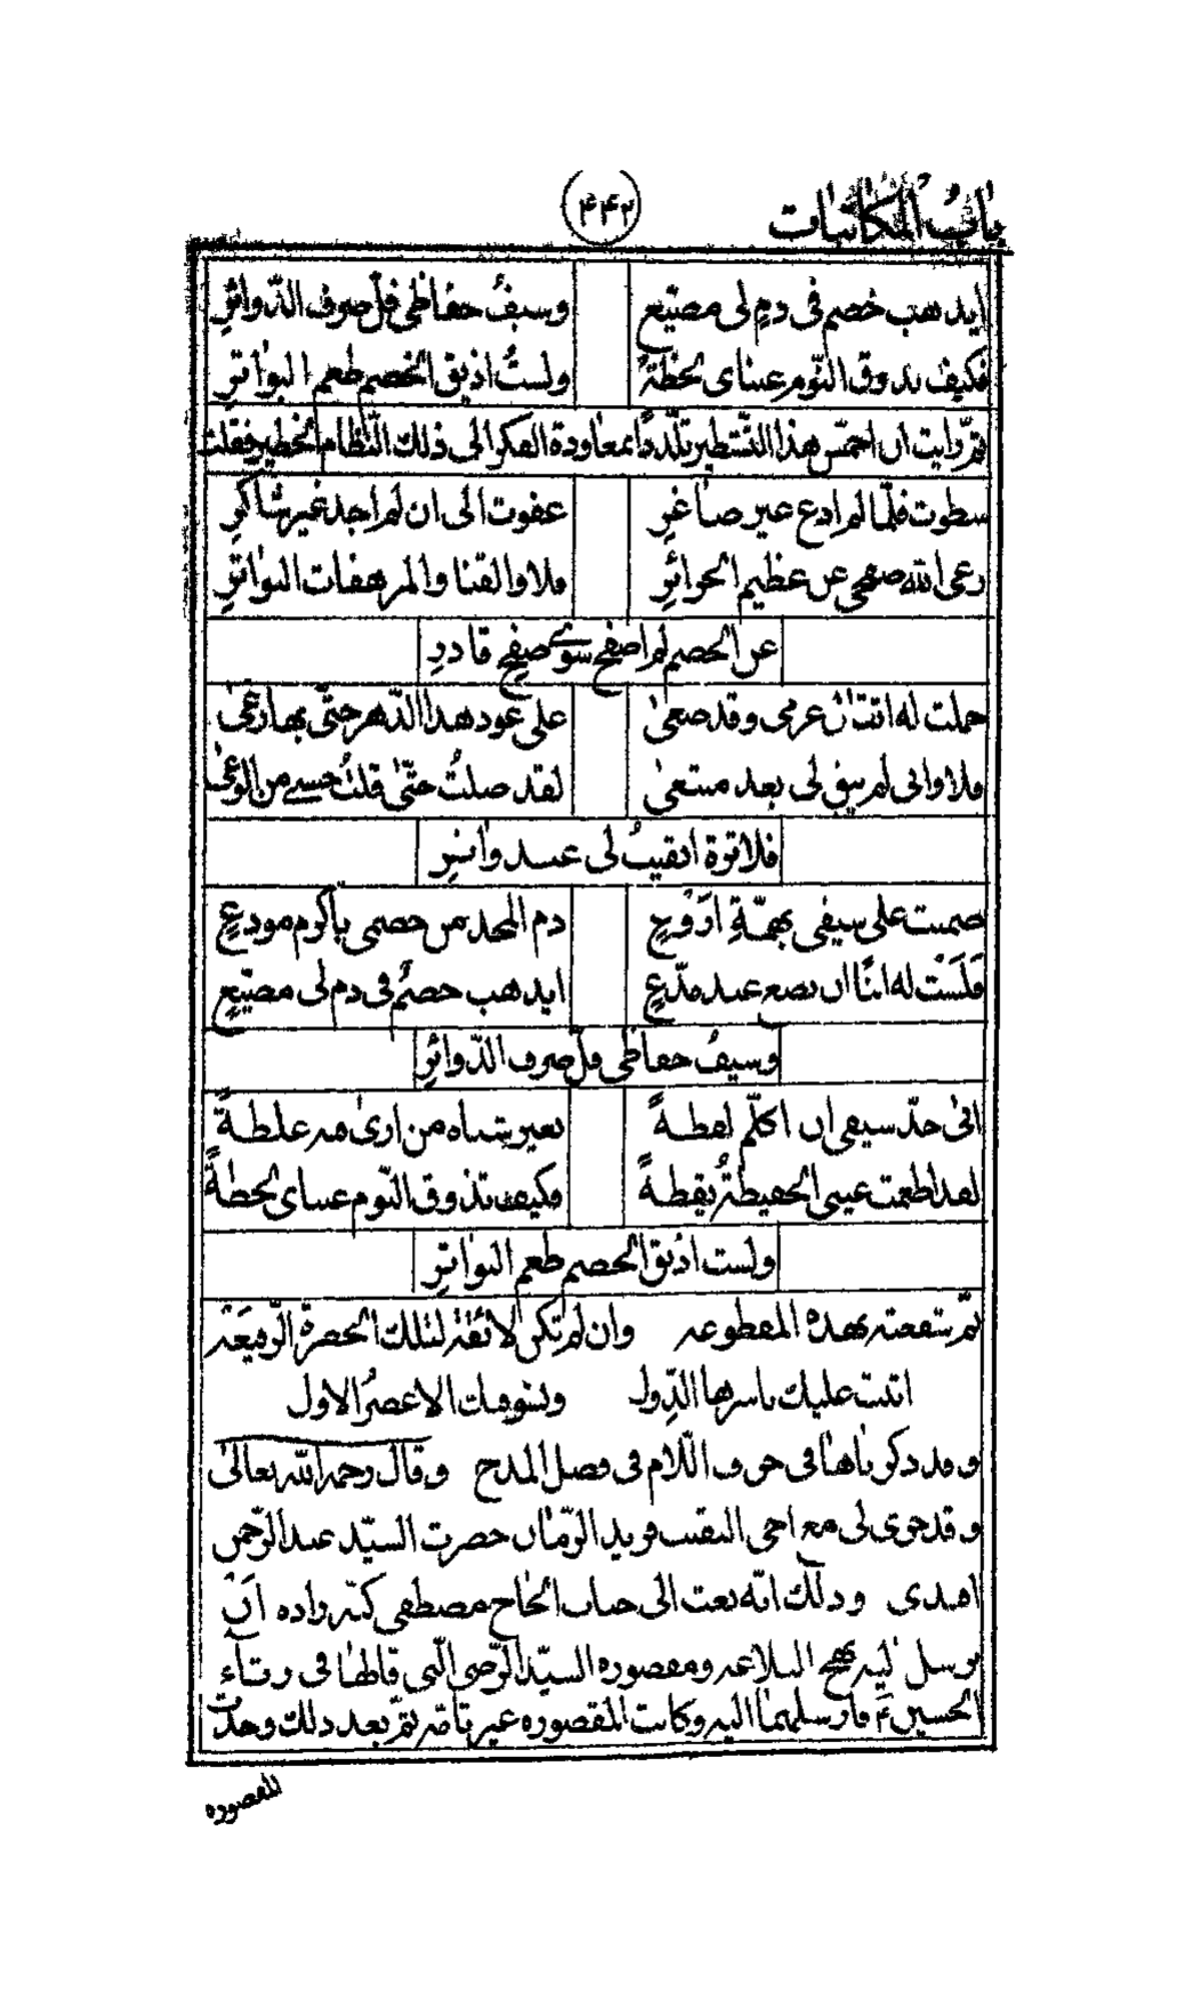 باب المكاتبات
(۴۴۲)
ايذهب خصم في دم لي مضيّع وسيفُ حفاظي فلّ صرف الدّوائرِ
فكيف يذوق النّوم عيناي لحظةً ولستُ اذيق الخصم طعم البواترِ
ثمّ رايت ان اخمّس هذا التّشطير تلدّدًا بمعاودة الفكر الى ذلك النّظام الخطير فقلت
سطوت فلمّا لم ادع غير صاغرِ عفوت الى ان لم اجد غير شاكرِ
رعى الله صفحي عن عظيم الجرائرِ فلا والقنا والمرهفات البواترِ
عن الخصم لم اصفح سوى صفح قادرِ
حملت له اثقال عزمي وقد صغىٰ على عود هذا الدّهر حتّى بها رغىٰ
فلا وابي لم يبق لي بعد مبتغىٰ لقد صلتُ حتّىٰ قلتُ حسبي من الوغىٰ
فلا ترة ابقيتُ لي عند واترِ
ضمنت على سيفي بهمّةِ اروعٍ دم المجد من خصمي باكرم مودعٍ
فَلَسْت له ابنًا ان يضع عند مدّعٍ ايذهب خصمٌ في دم لي مضيّعٍ
وسيفُ حفاظي فلّ صرف الدّوائرِ
ابىٰ حدّ سيفي ان اكلّم لفظةً بغير شباه من ارىٰ منه غلظةً
لقد اطعمت عيني الحفيظةُ يقظةً فكيف تذوق النّوم عيناي لحظةً
ولست اذيق الخصم طعم البواترِ
ثمّ شفعته بهذه المقطوعه وان لم تكن لائقة لتلك الحضرة الرّفيعة
اثنت عليك باسرها الدّول وتشوّقك الاعصرُ الاول
وقد ذكرناها في حرف اللّام في فصل المدح وقال رحمه الله تعالىٰ
وقد جرى لي مع اخي النقيب فريد الزّمان حضرت السيّد عبد الرّحمن
افندي وذلك انّه بعث الى جناب الحاج مصطفى كبّه زاده ان
يرسل اليه نهج البلاغه ومقصورة السيّد الرّضي الّتي قالها في رثاء
الحسين ع فارسلهما اليه وكانت المقصوره غير تامّه ثمّ بعد ذلك وجدت
المقصوره